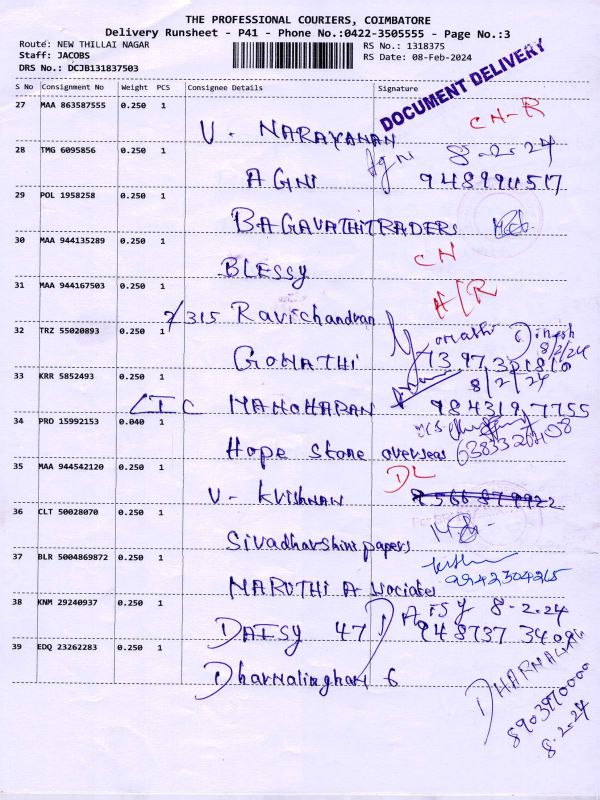 THE PROFESSIONAL COURIERS, COIMBATORE
Delivery Runsheet - P41 - Phone No.:0422-3505555 - Page No.:3
Route: NEW THILLAI NAGAR
Staff: JACOBS
DRS No.: DCJB131837503
RS No.: 1318375
RS Date: 08-Feb-2024
DOCUMENT DELIVERY
S No Consignment No Weight PCS Consignee Details Signature
27 MAA 863587555 0.250 1
V. NARAYANAN CN-R
28 TMG 6095856 0.250 1
AGNI Agni 8-2-24
9489911517
29 POL 1958258 0.250 1
BAGAVATHI TRADERS
30 MAA 944135289 0.250 1
BLESSY CN
31 MAA 944167503 0.250 1
2/315 Ravichandran A/R
32 TRZ 55020893 0.250 1
GOMATHI Gomathi Dinesh
8/2/24
33 KRR 5852493 0.250 1
LIC MANOHARAN 8/2/24
9843197755
34 PRO 15992153 0.040 1
Hope Stone overseas
35 MAA 944542120 0.250 1
V. Krishnan DL
36 CLT 50028070 0.250 1
Sivadharshini papers
37 BLR 5004869872 0.250 1
MARUTHI Associates 9942304265
38 KNM 29240937 0.250 1
DAISY 47 DAISY 8-2-24
39 EDQ 23262283 0.250 1
Dharnalingham 6
8903970000
8-2-24